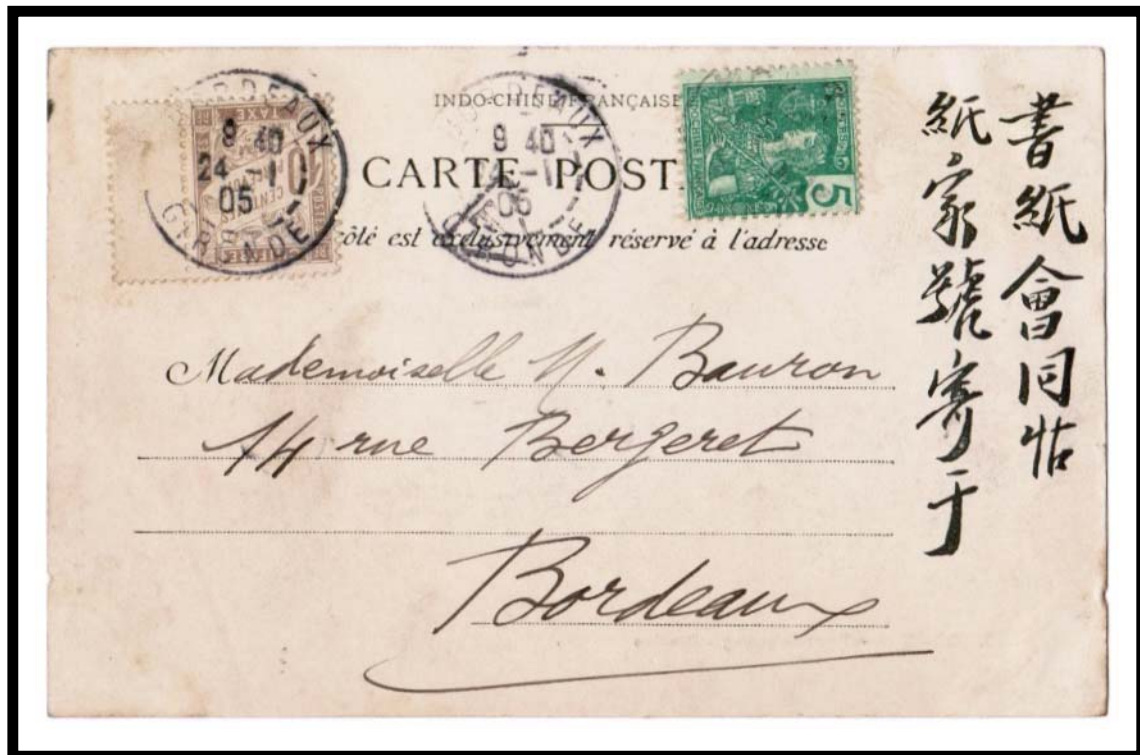 INDO-CHINE FRANÇAISE
CARTE POST
côté est exclusivement réservé à l'adresse
BORDEAUX
9 40
24 -1
05
GIRONDE
BORDEAUX
9 40
24 -1
05
GIRONDE
TAXE
10
5
Mademoiselle M. Bauron
14 rue Bergeret
Bordeaux
書紙會同帖
紙家號寄于